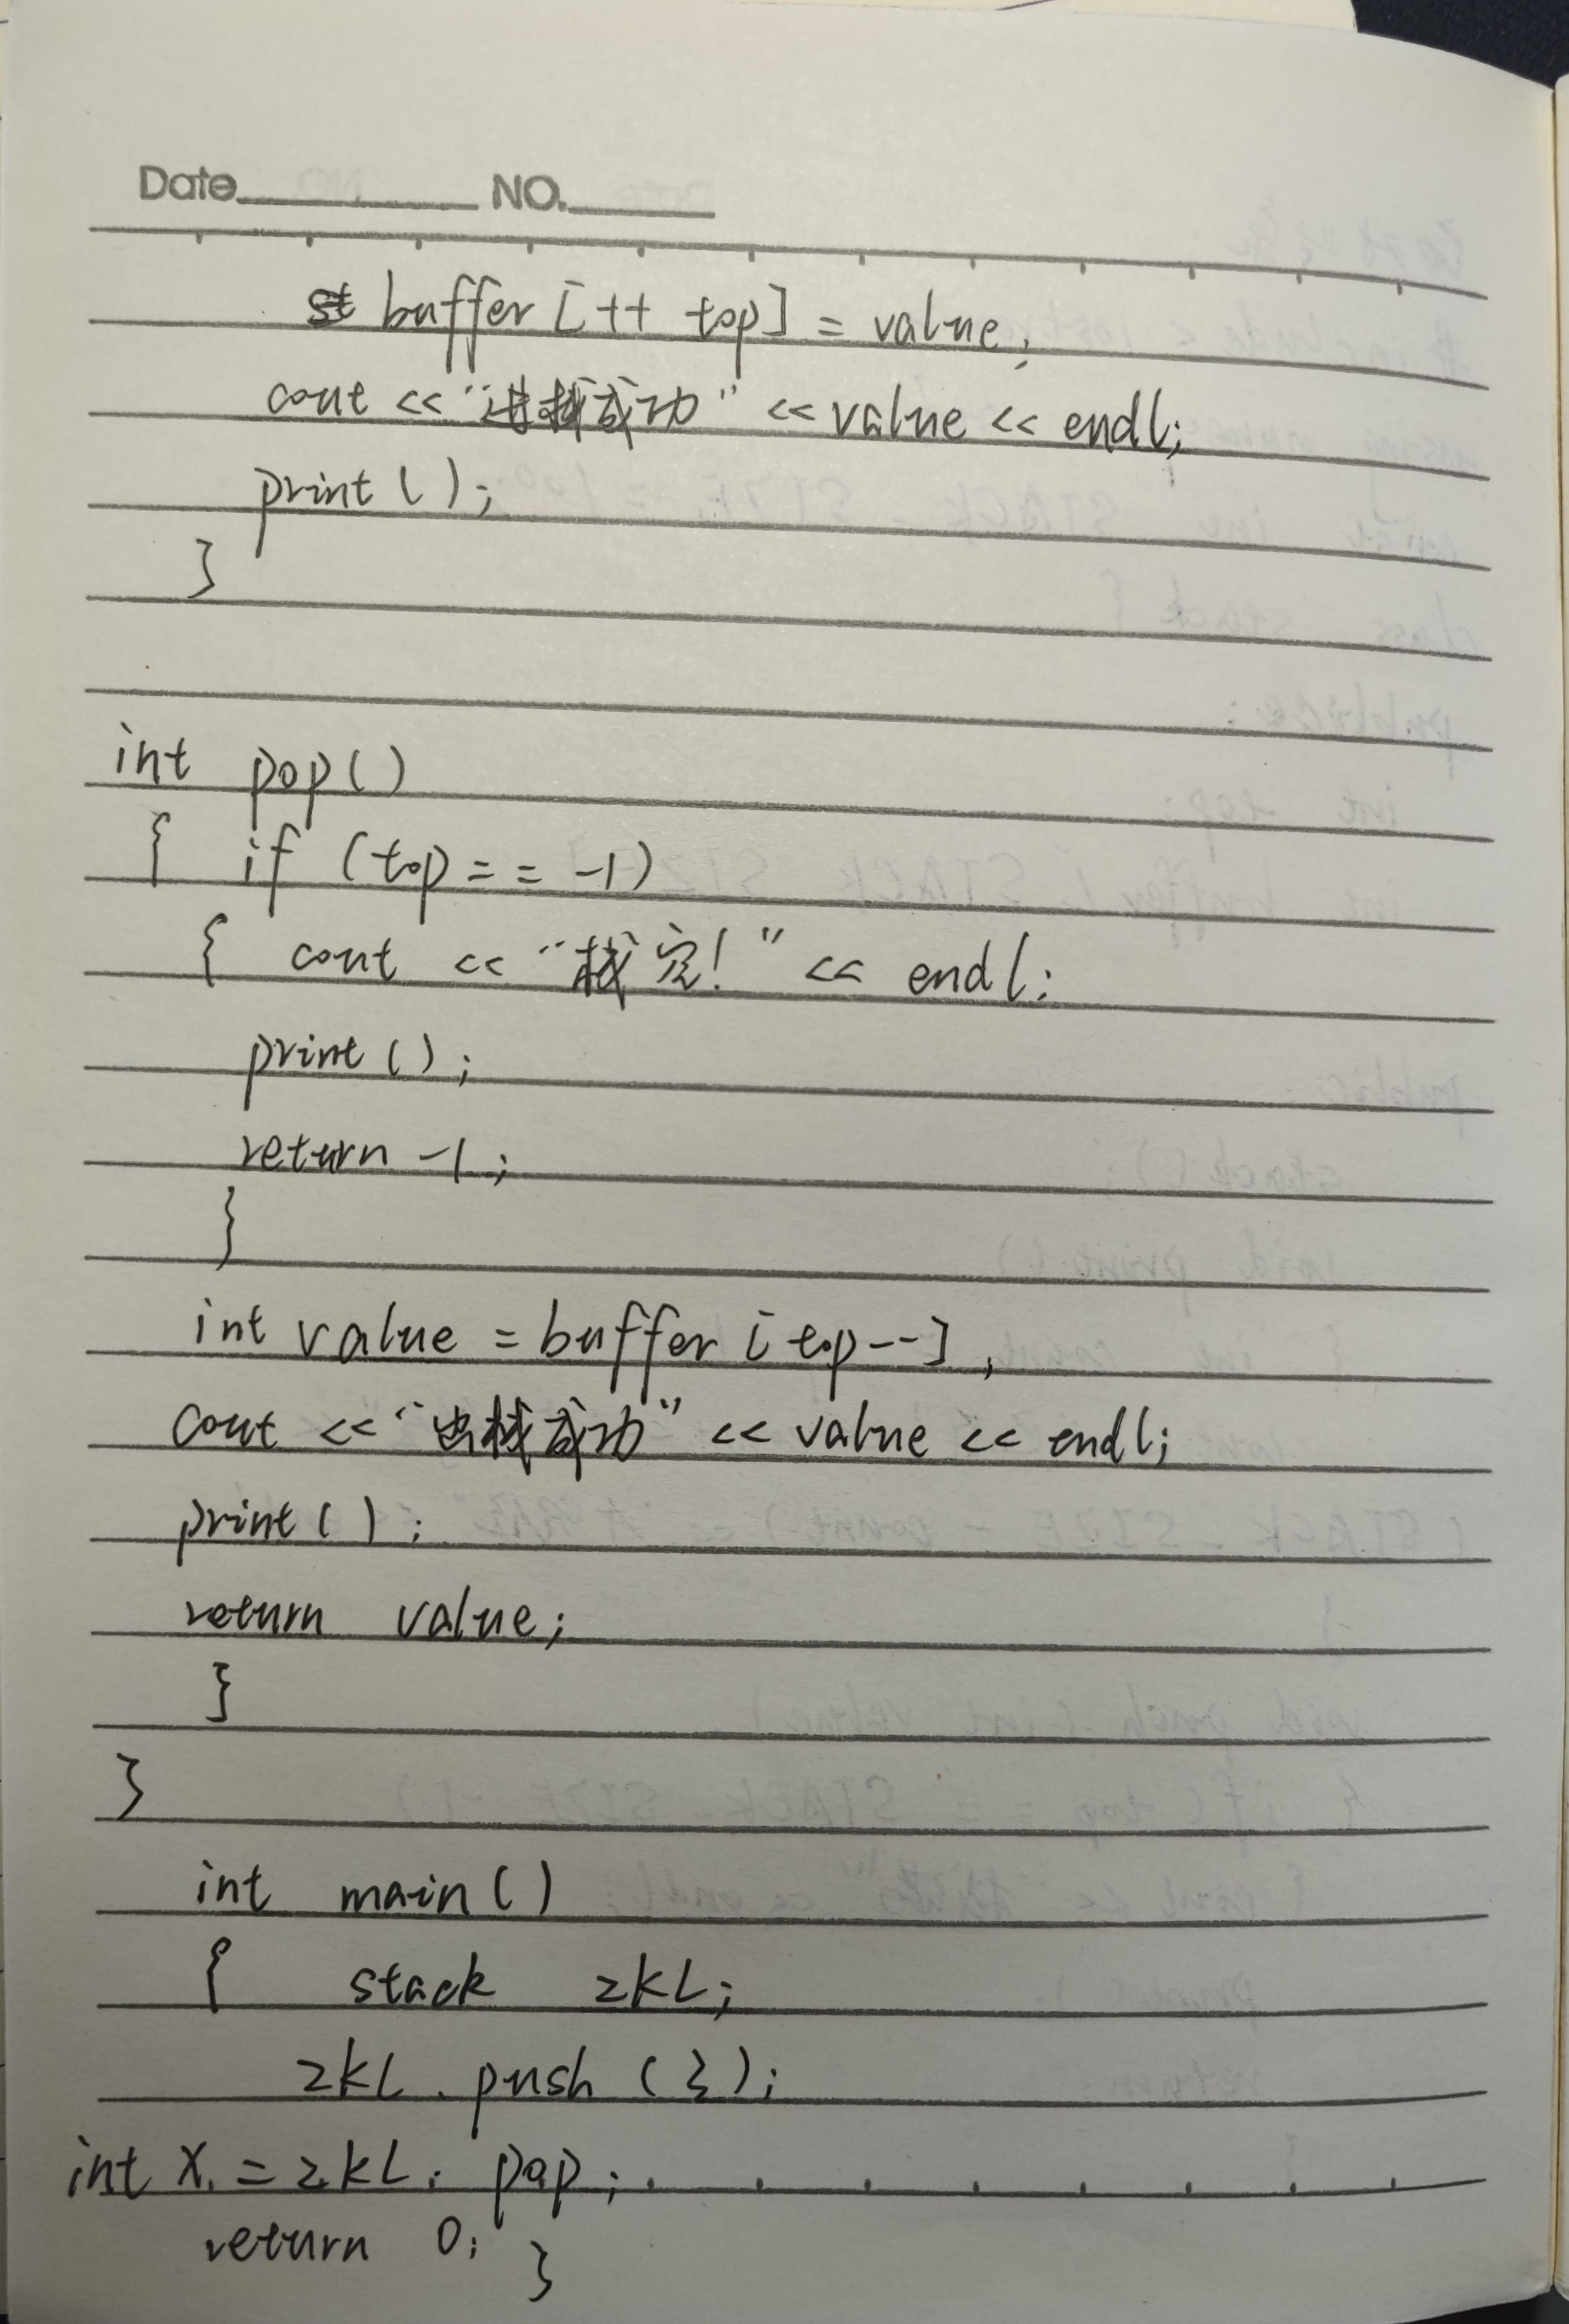 Date NO.
buffer [++ top] = value;
cout << "进栈成功" << value << endl;
print ( );
}
int pop()
{ if (top == -1)
{ cout << "栈空!" << endl;
print ( );
return -1;
}
int value = buffer [top--];
cout << "出栈成功" << value << endl;
print ( );
return value;
}
}
int main()
{ stack zkL;
zkL. push (3);
int x = zkL. pop;
return 0; }